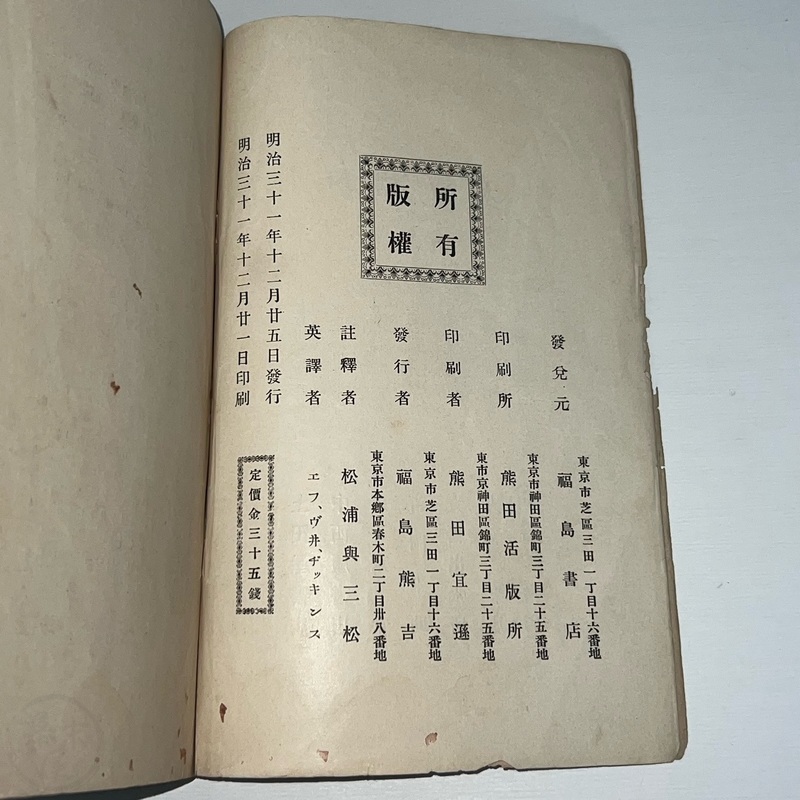 版權
所有
明治三十一年十二月廿一日印刷
明治三十一年十二月廿五日發行
定價金三十五錢
英譯者
エフ、ヴ井、ヂッキンス
註釋者
松浦與三松
東京市本鄕區春木町二丁目卅八番地
發行者
福島熊吉
東京市芝區三田一丁目十六番地
印刷者
熊田宜遜
東市京神田區錦町三丁目二十五番地
印刷所
熊田活版所
東京市神田區錦町三丁目二十五番地
發兌元
福島書店
東京市芝區三田一丁目十六番地